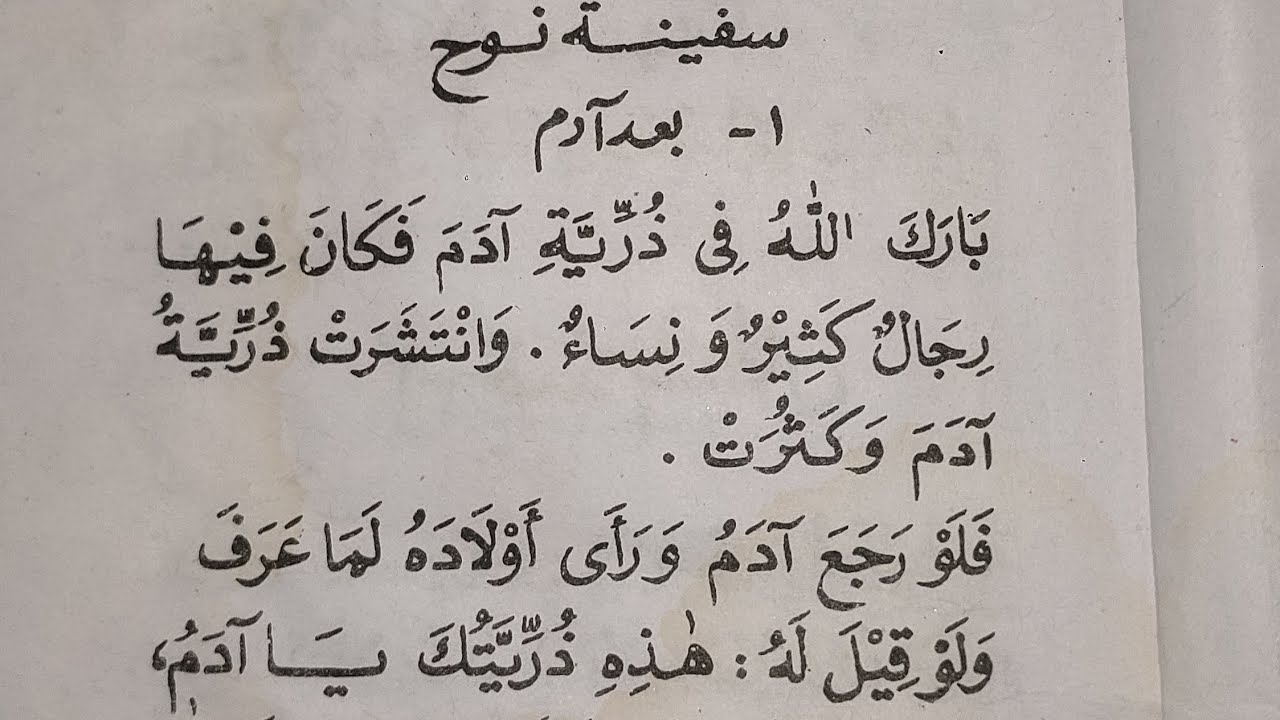 سفينة نوح
١- بعد آدم
بَارَكَ اللّٰهُ فِى ذُرِّيَّةِ آدَمَ فَكَانَ فِيْهَا
رِجَالٌ كَثِيْرٌ وَ نِسَاءٌ . وَانْتَشَرَتْ ذُرِّيَّةُ
آدَمَ وَكَثُرَتْ .
فَلَوْ رَجَعَ آدَمُ وَرَأَى أَوْلَادَهُ لَمَا عَرَفَ
وَلَوْ قِيْلَ لَهُ : هٰذِهِ ذُرِّيَّتُكَ يَا آدَمُ،